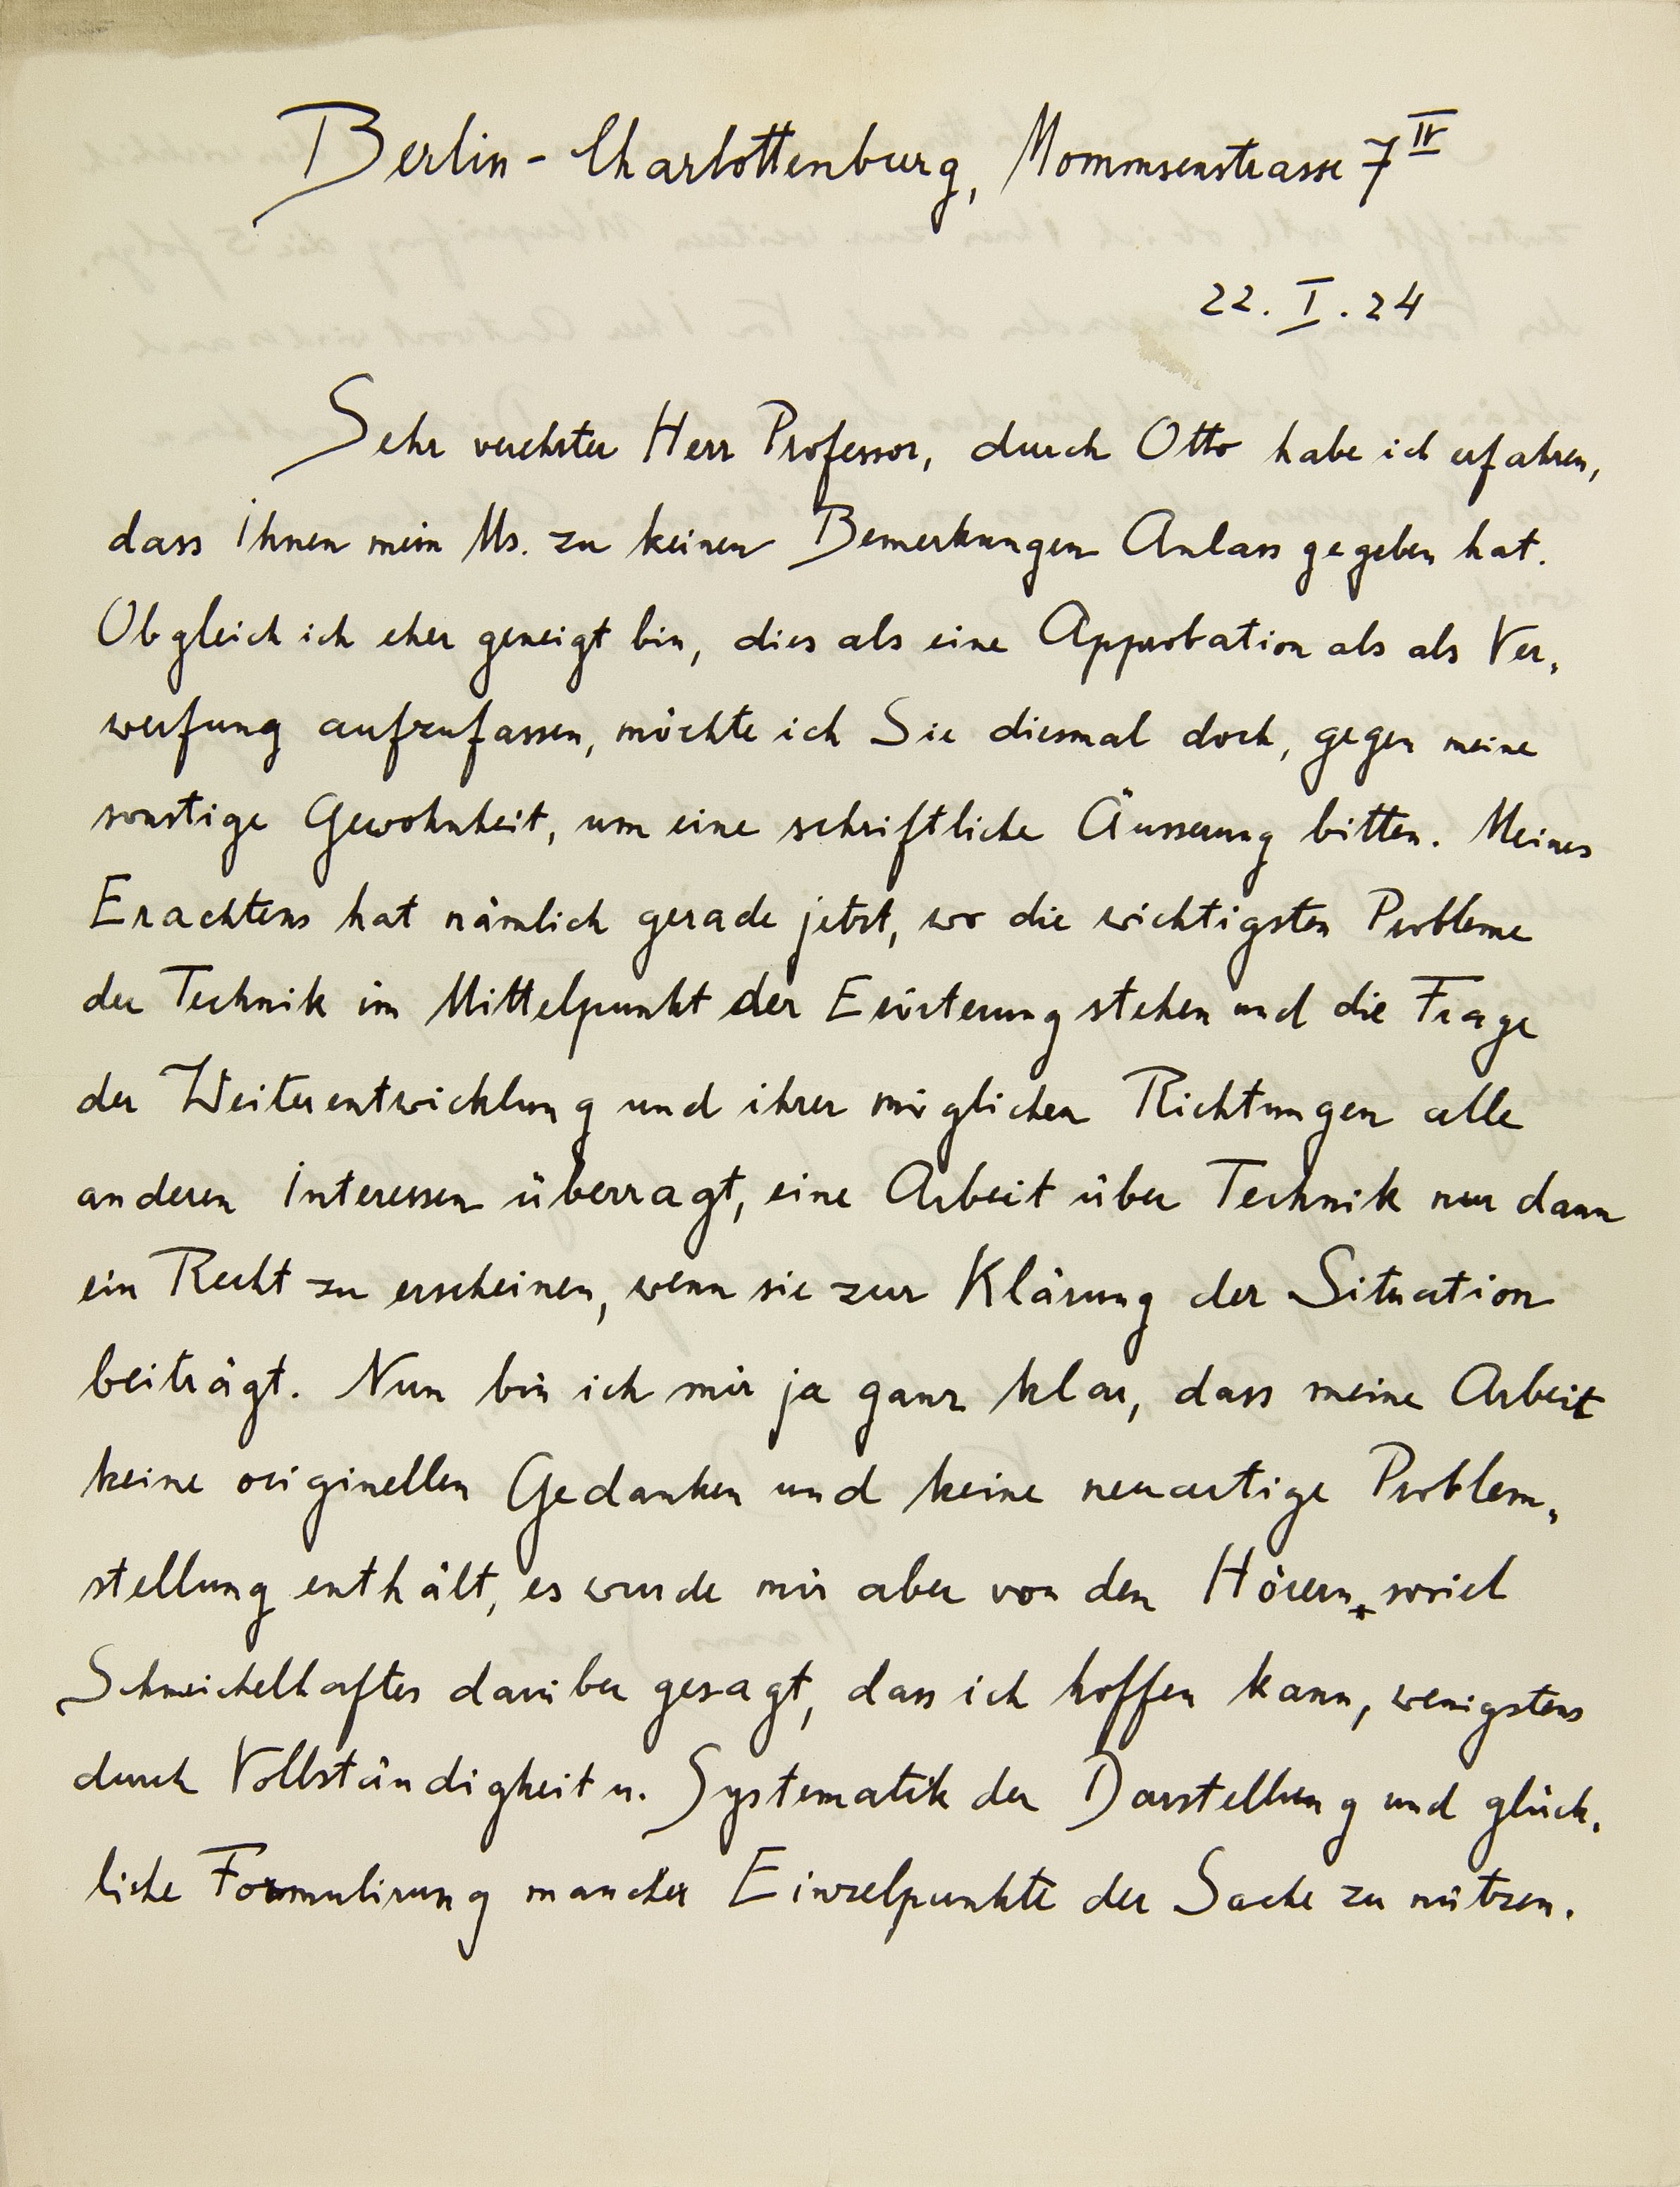 Berlin-Charlottenburg, Mommsenstrasse 7 IV
22. I. 24
Sehr verehrter Herr Professor, durch Otto habe ich erfahren,
dass Ihnen mein Ms. zu keinen Bemerkungen Anlass gegeben hat.
Obgleich ich eher geneigt bin, dies als eine Approbation als als Ver-
werfung aufzufassen, möchte ich Sie diesmal doch, gegen meine
sonstige Gewohnheit, um eine schriftliche Äusserung bitten. Meines
Erachtens hat nämlich gerade jetzt, wo die wichtigsten Probleme
der Technik im Mittelpunkt der Erörterung stehen und die Frage
der Weiterentwicklung und ihrer möglichen Richtungen alle
anderen Interessen überragt, eine Arbeit über Technik nur dann
ein Recht zu erscheinen, wenn sie zur Klärung der Situation
beiträgt. Nun bin ich mir ja ganz klar, dass meine Arbeit
keine originellen Gedanken und keine neuartige Problem-
stellung enthält, es wurde mir aber von den Hörern soviel
Schmeichelhaftes darüber gesagt, dass ich hoffen kann, wenigstens
durch Vollständigkeit u. Systematik der Darstellung und glück-
liche Formulirung mancher Einzelpunkte der Sache zu nützen.